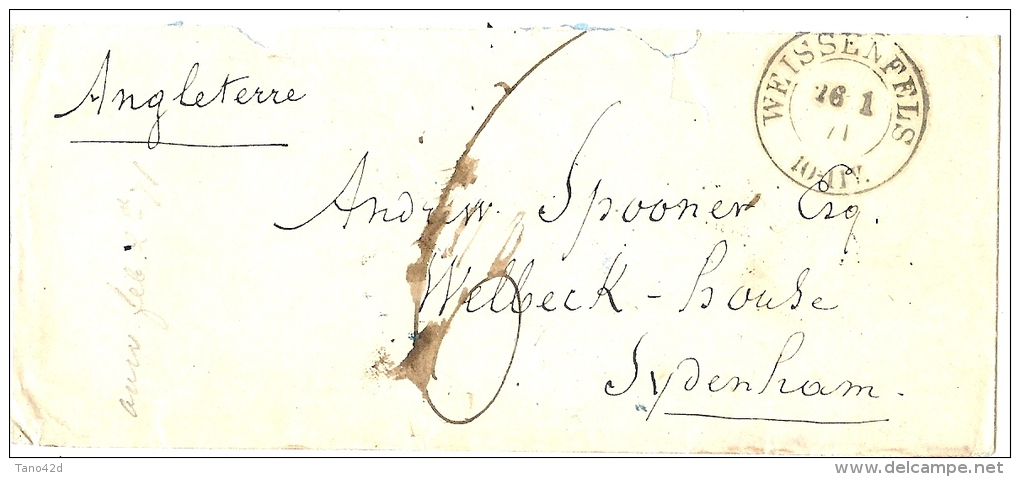 Angleterre
WEISSENFELS
26 1
71
10-11V.
Andrew Spooner Esq.
Welbeck - house
Sydenham.
6
Tano42d
www.delcampe.net